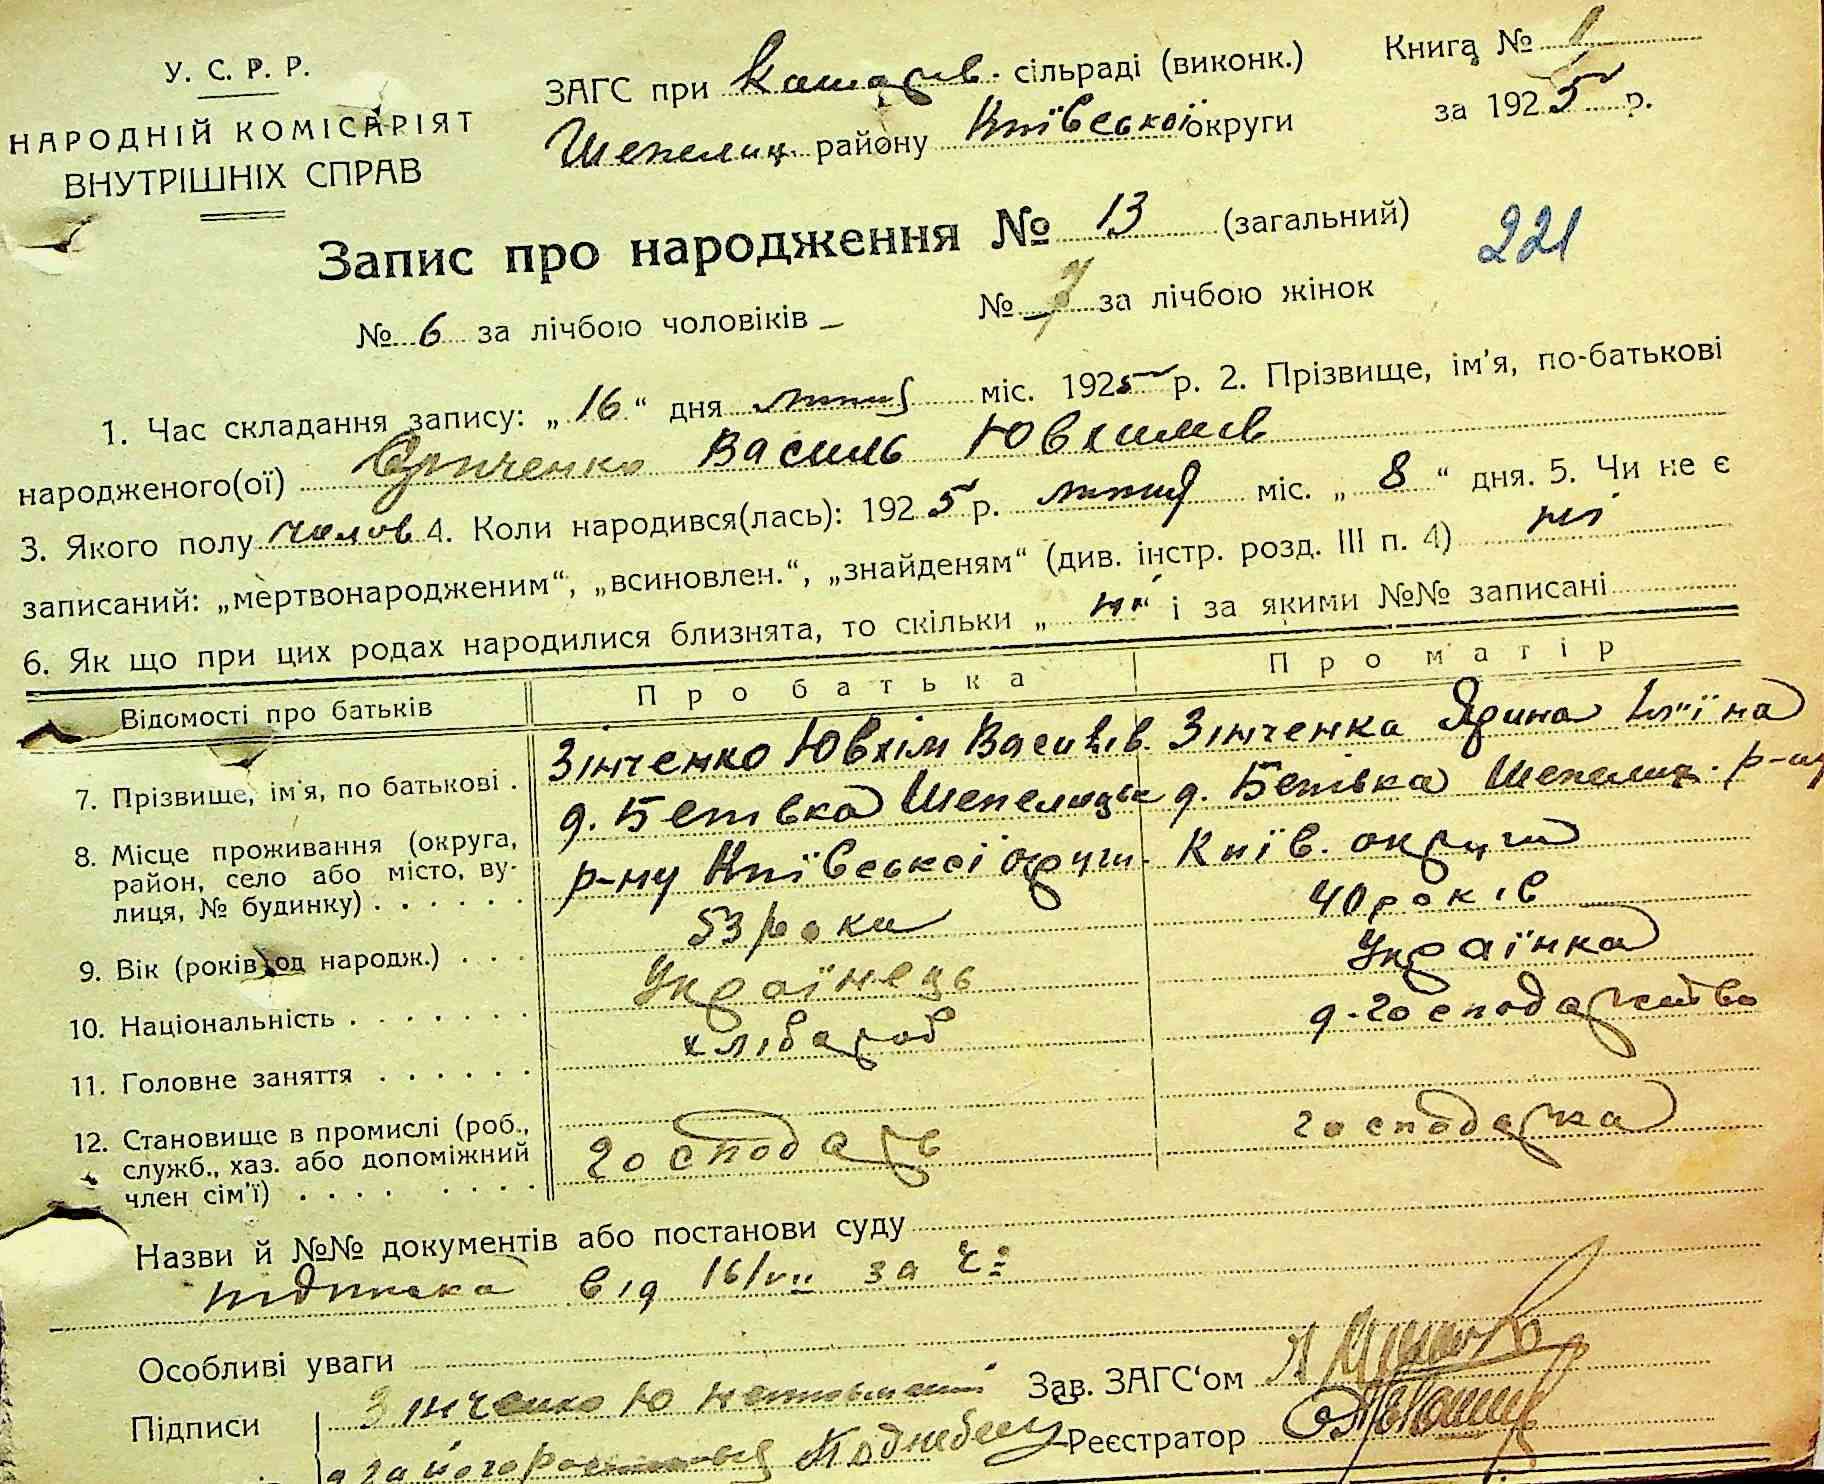 У. С. Р. Р.
НАРОДНІЙ КОМІСАРІЯТ
ВНУТРІШНІХ СПРАВ
ЗАГС при сільраді (виконк.)
Шепелиц. району Київської округи
Книга № 1
за 1925 р.
Запис про народження № 13 (загальний)
221
№ 6 за лічбою чоловіків – № за лічбою жінок
1. Час складання запису: „16“ дня липця міс. 1925 р. 2. Прізвище, ім'я, по-батькові
народженого(ої) Василь Ювхимів
3. Якого полу чолов 4. Коли народився(лась): 1925 р. липця міс. „8“ дня. 5. Чи не є
записаний: „мертвонародженим“, „всиновлен.“, „знайденям“ (див. інстр. розд. III п. 4) ні
6. Як що при цих родах народилися близнята, то скільки „ні“ і за якими №№ записані
Відомості про батьків
Про батька
Про матір
7. Прізвище, ім'я, по батькові .
Зінченко Ювхім Василів.
Зінченка Ярина Іл'їна
8. Місце проживання (округа, район, село або місто, вулиця, № будинку) . . . . . .
д. Бенівка Шепелицьк
р-ну Київської округи.
д. Бенівка Шепелиц. р-ну
Київ. округи
9. Вік (років од народж.) . . .
53 роки
40 років
10. Національність . . . . . . .
Українець
Українка
11. Головне заняття . . . . . .
хлібароб
д-господарство
12. Становище в промислі (роб., служб., хаз. або допоміжний член сім'ї) . . . . . . . .
господарь
господарка
Назви й №№ документів або постанови суду
від 16/VII за ч:
Особливі уваги
Підписи
Зінченко Ю
Зав. ЗАГС'ом
Реєстратор